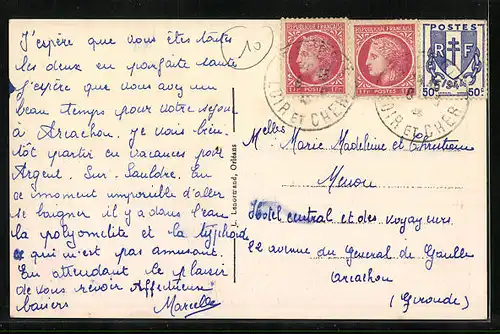 J'espère que vous êtes toutes
les deux en parfaite santé
j'espère que vous avez un
beau temps pour votre séjour
à Arcachon, je vais bien-
tôt partir en vacances pour
Argent. Sur. Sauldre. En
ce moment impossible d'aller
se baigner il y a dans l'eau
la polyomélite et la typhoïde
ce qui n'est pas amusant.
En attendant le plaisir
de vous revoir Affectueux
baisers Marcelle
10
RÉPUBLIQUE FRANÇAISE
1F POSTES 1F
RÉPUBLIQUE FRANÇAISE
POSTES
POSTES
RF
50c 50c
LOIR ET CHER
LOIR ET CHER
L. Lenormand, Orléans
Melles Marie Madeleine et Christiane
Menou
Hotel central et des voyageurs
avenue du General de Gaulle
Arcachon
(Gironde)